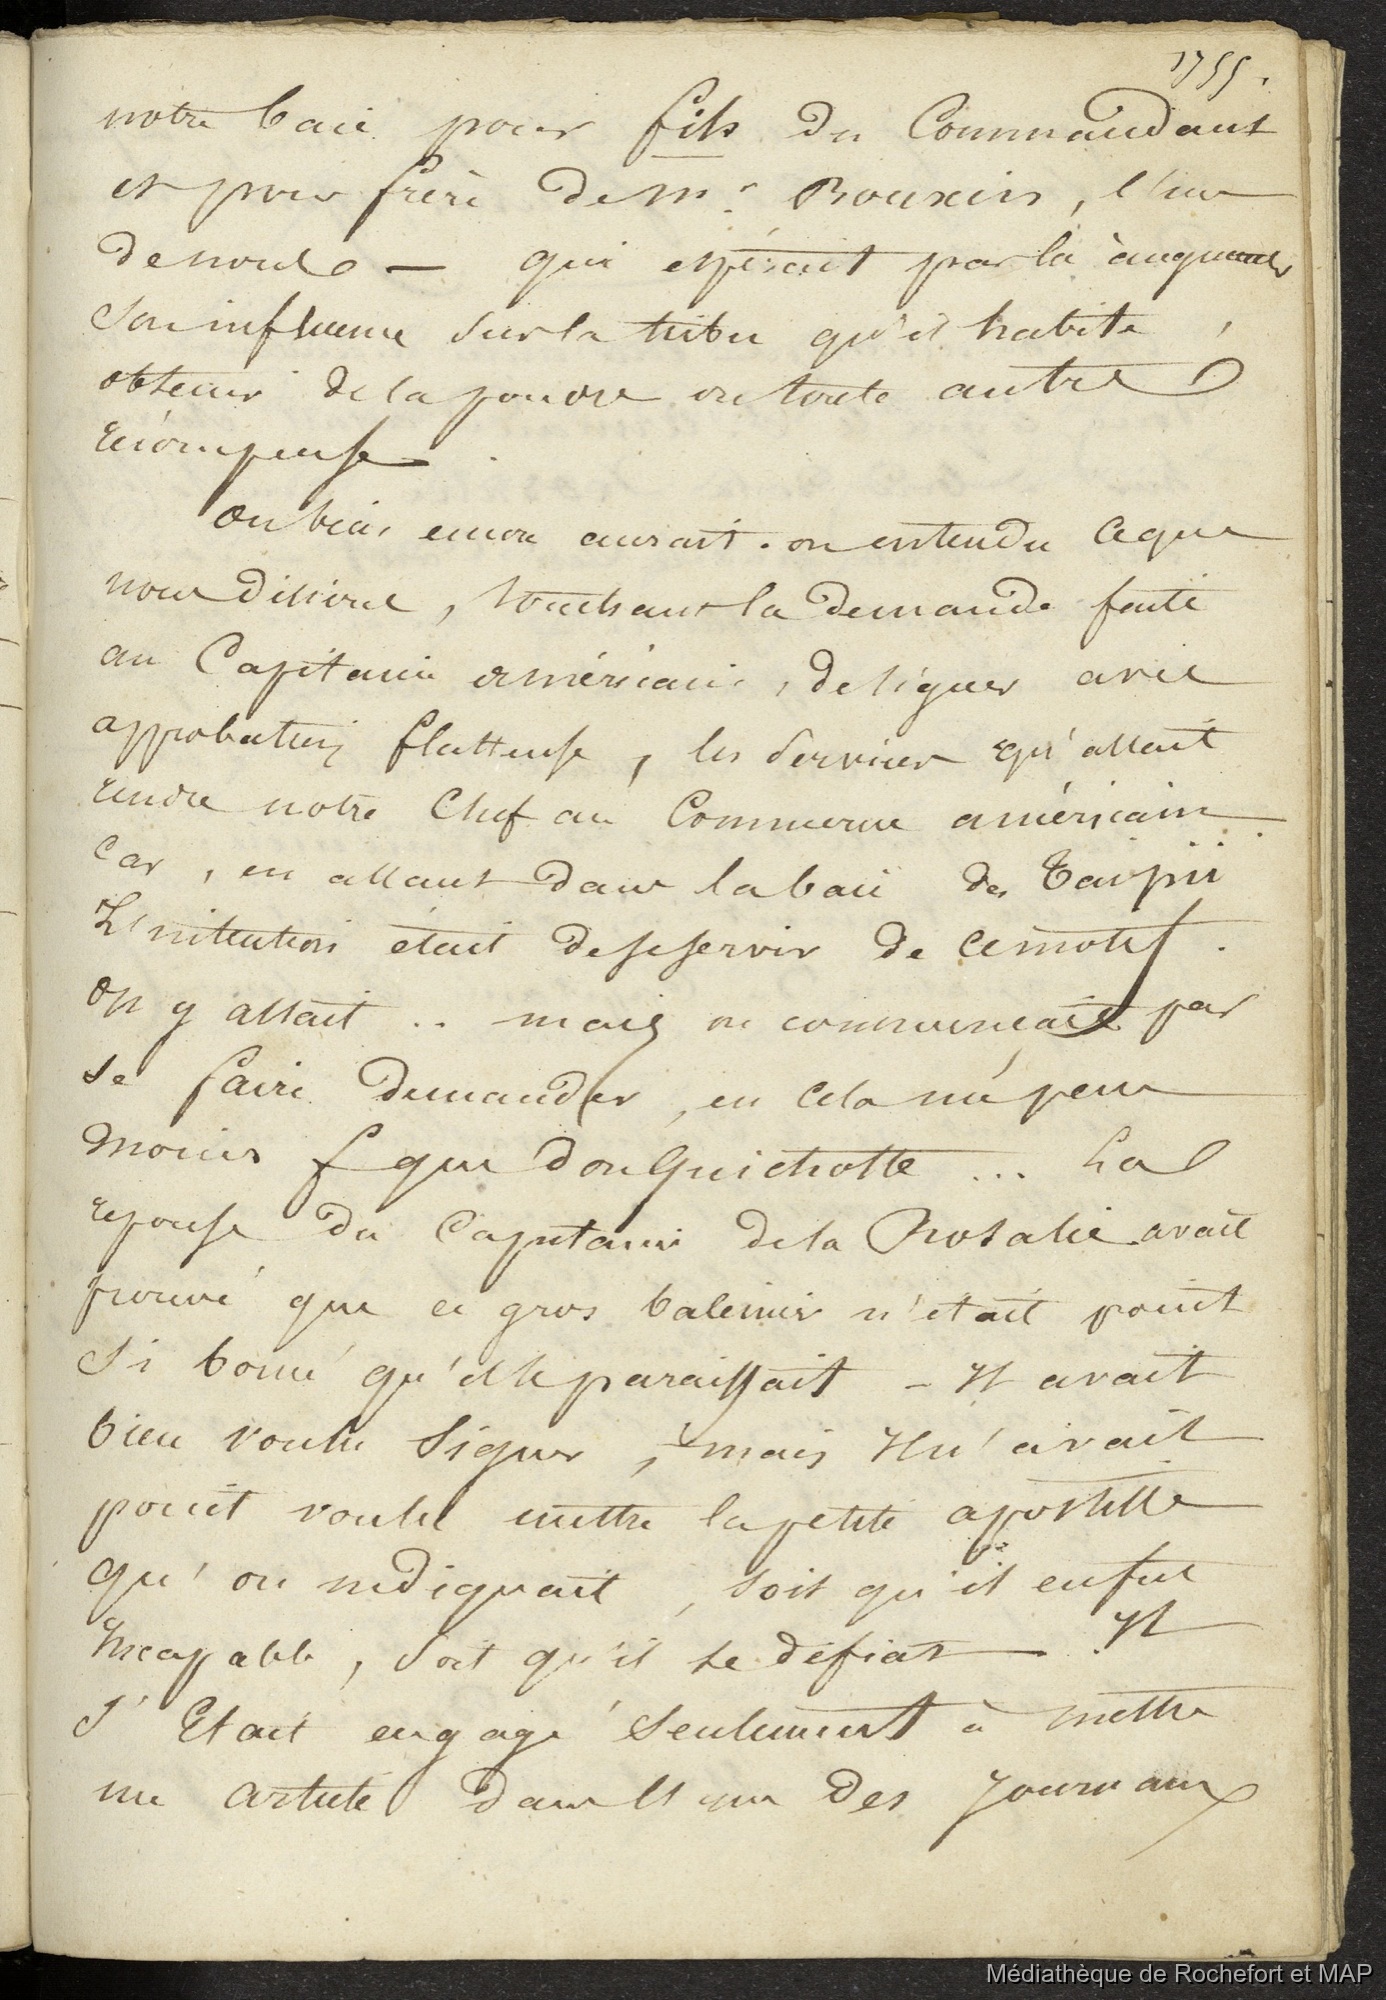 1755.
notre baie pour fils du Commandant
et pour frère de Mr. Rouxein, l'un
de nous — qui espérait par là augmenter
son influence sur la tribu qu'il habite,
obtenir de la poudre ou toute autre
récompense.
Ou bien encore aurait-on entendu ce que
nous disions, touchant la demande faite
au Capitaine américain, de signer avec
approbation flatteuse, les services qu'allait
rendre notre Chef au Commerce américain
Car, en allant dans la baie des Taïpii
L'intention était de se servir de ce motif.
on y allait .. mais on commençait par
se faire demander, en cela un peu
moins que don Quichotte ... La
réponse du Capitaine de la Rosalie avait
prouvé que ce gros baleinier n'était point
si borné qu'il le paraissait – Il avait
bien voulu signer, mais il n'avait
point voulu mettre la petite apostille
qu'on indiquait, soit qu'il en fut
Incapable, soit qu'il se défiat — Il
s'Etait engagé seulement à mettre
un article dans l'un des Journaux
Médiathèque de Rochefort et MAP